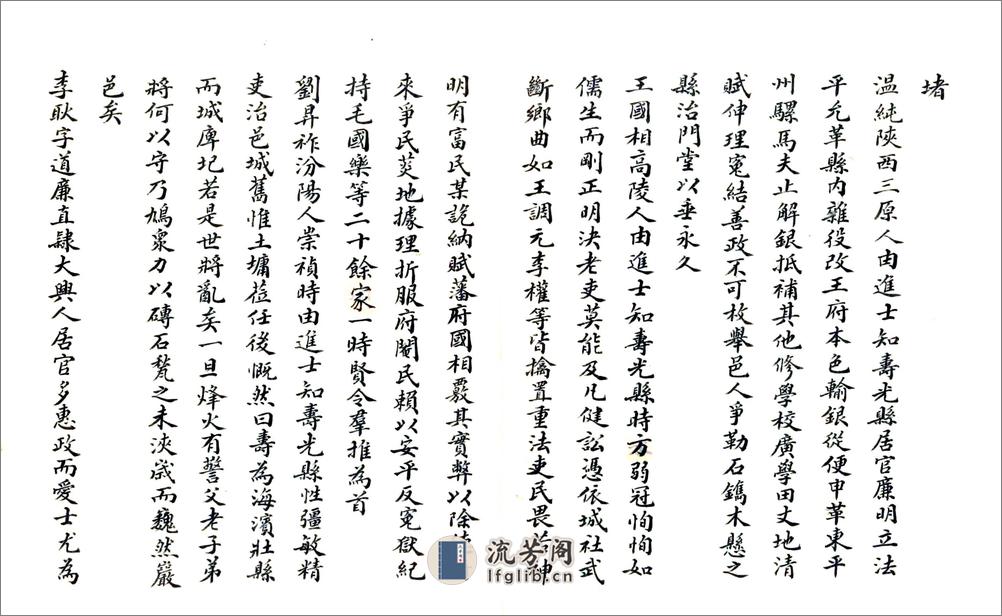 堵
温純陝西三原人由進士知壽光縣居官廉明立法
平允革縣内雜役改王府本色輸銀從便申革東平
州騾馬夫止解銀抵補其他修學校廣學田丈地清
賦伸理冤結善政不可枚舉邑人爭勒石鐫木懸之
縣治門堂以垂永久
王國相高陵人由進士知壽光縣時方弱冠恂恂如
儒生而剛正明決老吏莫能及凡健訟憑依城社武
斷鄉曲如王調元李權等皆擒置重法吏民畏若神
明有富民某詭納賦藩府國相覈其實弊以除
來爭民茭地據理折服府閹民賴以安平反冤獄紀
持毛國樂等二十餘家一時賢令羣推為首
劉昇祚汾陽人崇禎時由進士知壽光縣性彊敏精
吏治邑城舊惟土墉莅任後慨然曰壽為海濱壯縣
而城庳圮若是世將亂矣一旦烽火有警父老子弟
將何以守乃鳩衆力以磚石甃之未浹歲而巍然巖
邑矣
李耿字道廉直隷大興人居官多惠政而愛士尤為
流芳阁
lfglib.cn